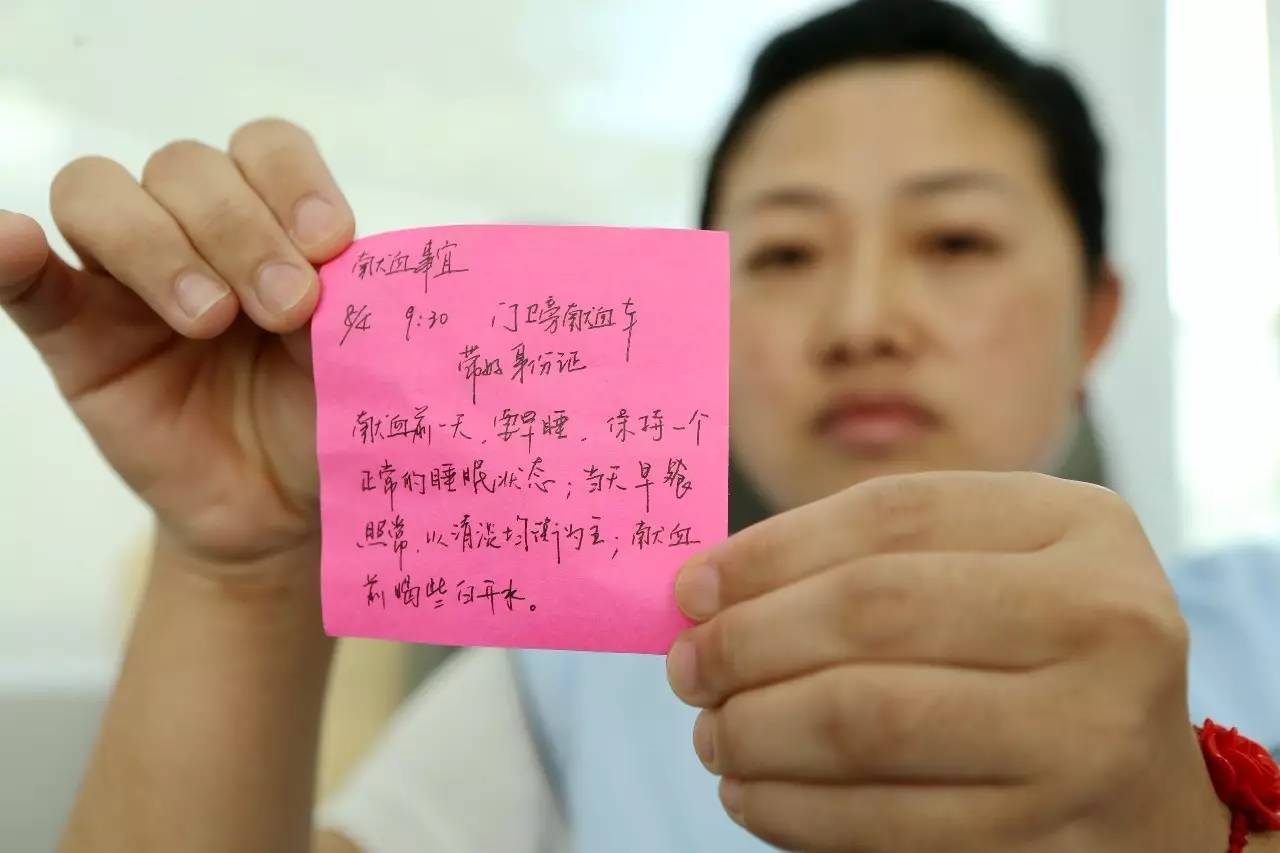 献血事宜
8/5 9:30 门卫旁献血车
带好身份证
献血前一天,要早睡,保持一个
正常的睡眠状态;当天早餐
照常,以清淡均衡为主;献血
前喝些白开水。